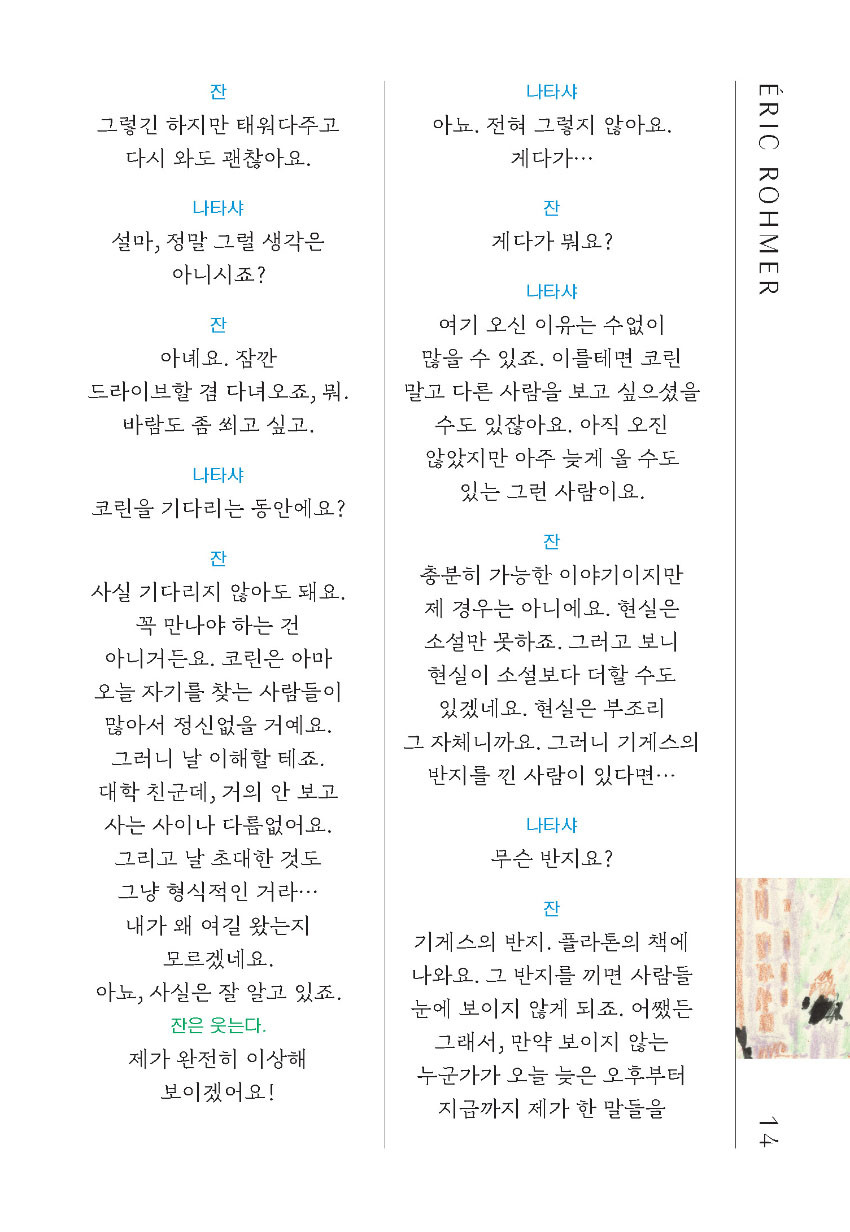 잔
그렇긴 하지만 태워다주고
다시 와도 괜찮아요.
나타샤
설마, 정말 그럴 생각은
아니시죠?
잔
아녜요. 잠깐
드라이브할 겸 다녀오죠, 뭐.
바람도 좀 쐬고 싶고.
나타샤
코린을 기다리는 동안에요?
잔
사실 기다리지 않아도 돼요.
꼭 만나야 하는 건
아니거든요. 코린은 아마
오늘 자기를 찾는 사람들이
많아서 정신없을 거예요.
그러니 날 이해할 테죠.
대학 친군데, 거의 안 보고
사는 사이나 다름없어요.
그리고 날 초대한 것도
그냥 형식적인 거라…
내가 왜 여길 왔는지
모르겠네요.
아뇨, 사실은 잘 알고 있죠.
잔은 웃는다.
제가 완전히 이상해
보이겠어요!
나타샤
아뇨. 전혀 그렇지 않아요.
게다가…
잔
게다가 뭐요?
나타샤
여기 오신 이유는 수없이
많을 수 있죠. 이를테면 코린
말고 다른 사람을 보고 싶으셨을
수도 있잖아요. 아직 오진
않았지만 아주 늦게 올 수도
있는 그런 사람이요.
잔
충분히 가능한 이야기이지만
제 경우는 아니에요. 현실은
소설만 못하죠. 그러고 보니
현실이 소설보다 더할 수도
있겠네요. 현실은 부조리
그 자체니까요. 그러니 기게스의
반지를 낀 사람이 있다면…
나타샤
무슨 반지요?
잔
기게스의 반지. 플라톤의 책에
나와요. 그 반지를 끼면 사람들
눈에 보이지 않게 되죠. 어쨌든
그래서, 만약 보이지 않는
누군가가 오늘 늦은 오후부터
지금까지 제가 한 말들을
ÉRIC ROHMER
14